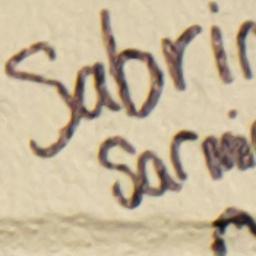 Sabrin
sarmi